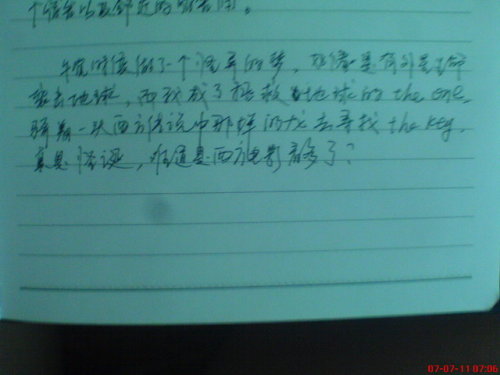 午夜时候做了一个的梦，好像是有外星
袭击地球，而我成了拯救地球的 the one,
骑着一头西方传说中那样的龙去寻找 the key,
真是怪诞，难道是西方电影看多了？
07-07-11 07:06